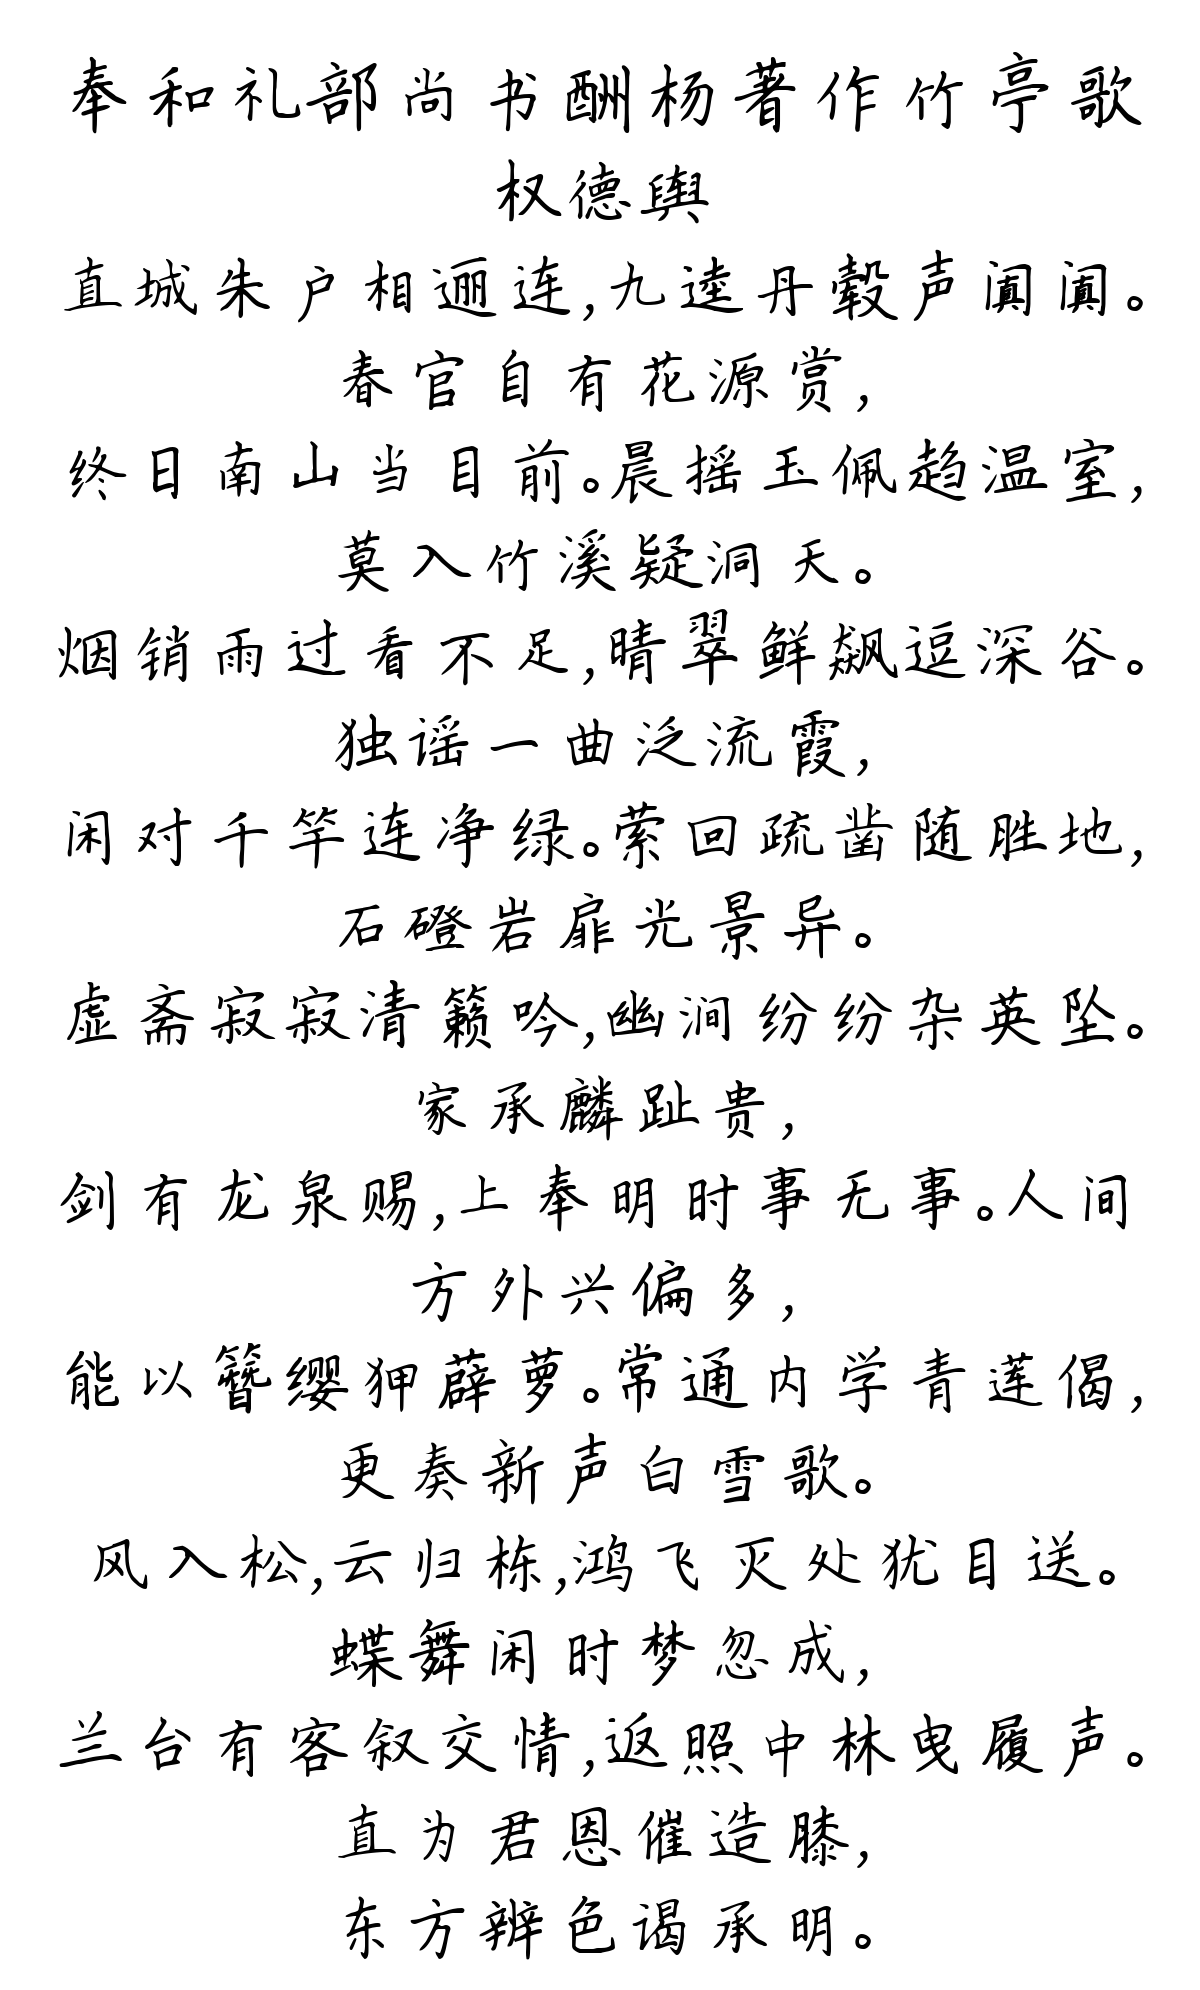 奉和礼部尚书酬杨著作竹亭歌
权德舆
直城朱户相逦连,九逵丹毂声阗阗。
春官自有花源赏,
终日南山当目前。晨摇玉佩趋温室,
莫入竹溪疑洞天。
烟销雨过看不足,晴翠鲜飙逗深谷。
独谣一曲泛流霞,
闲对千竿连净绿。萦回疏凿随胜地,
石磴岩扉光景异。
虚斋寂寂清籁吟,幽涧纷纷杂英坠。
家承麟趾贵,
剑有龙泉赐,上奉明时事无事。人间
方外兴偏多,
能以簪缨狎薜萝。常通内学青莲偈,
更奏新声白雪歌。
风入松,云归栋,鸿飞灭处犹目送。
蝶舞闲时梦忽成,
兰台有客叙交情,返照中林曳履声。
直为君恩催造膝,
东方辨色谒承明。